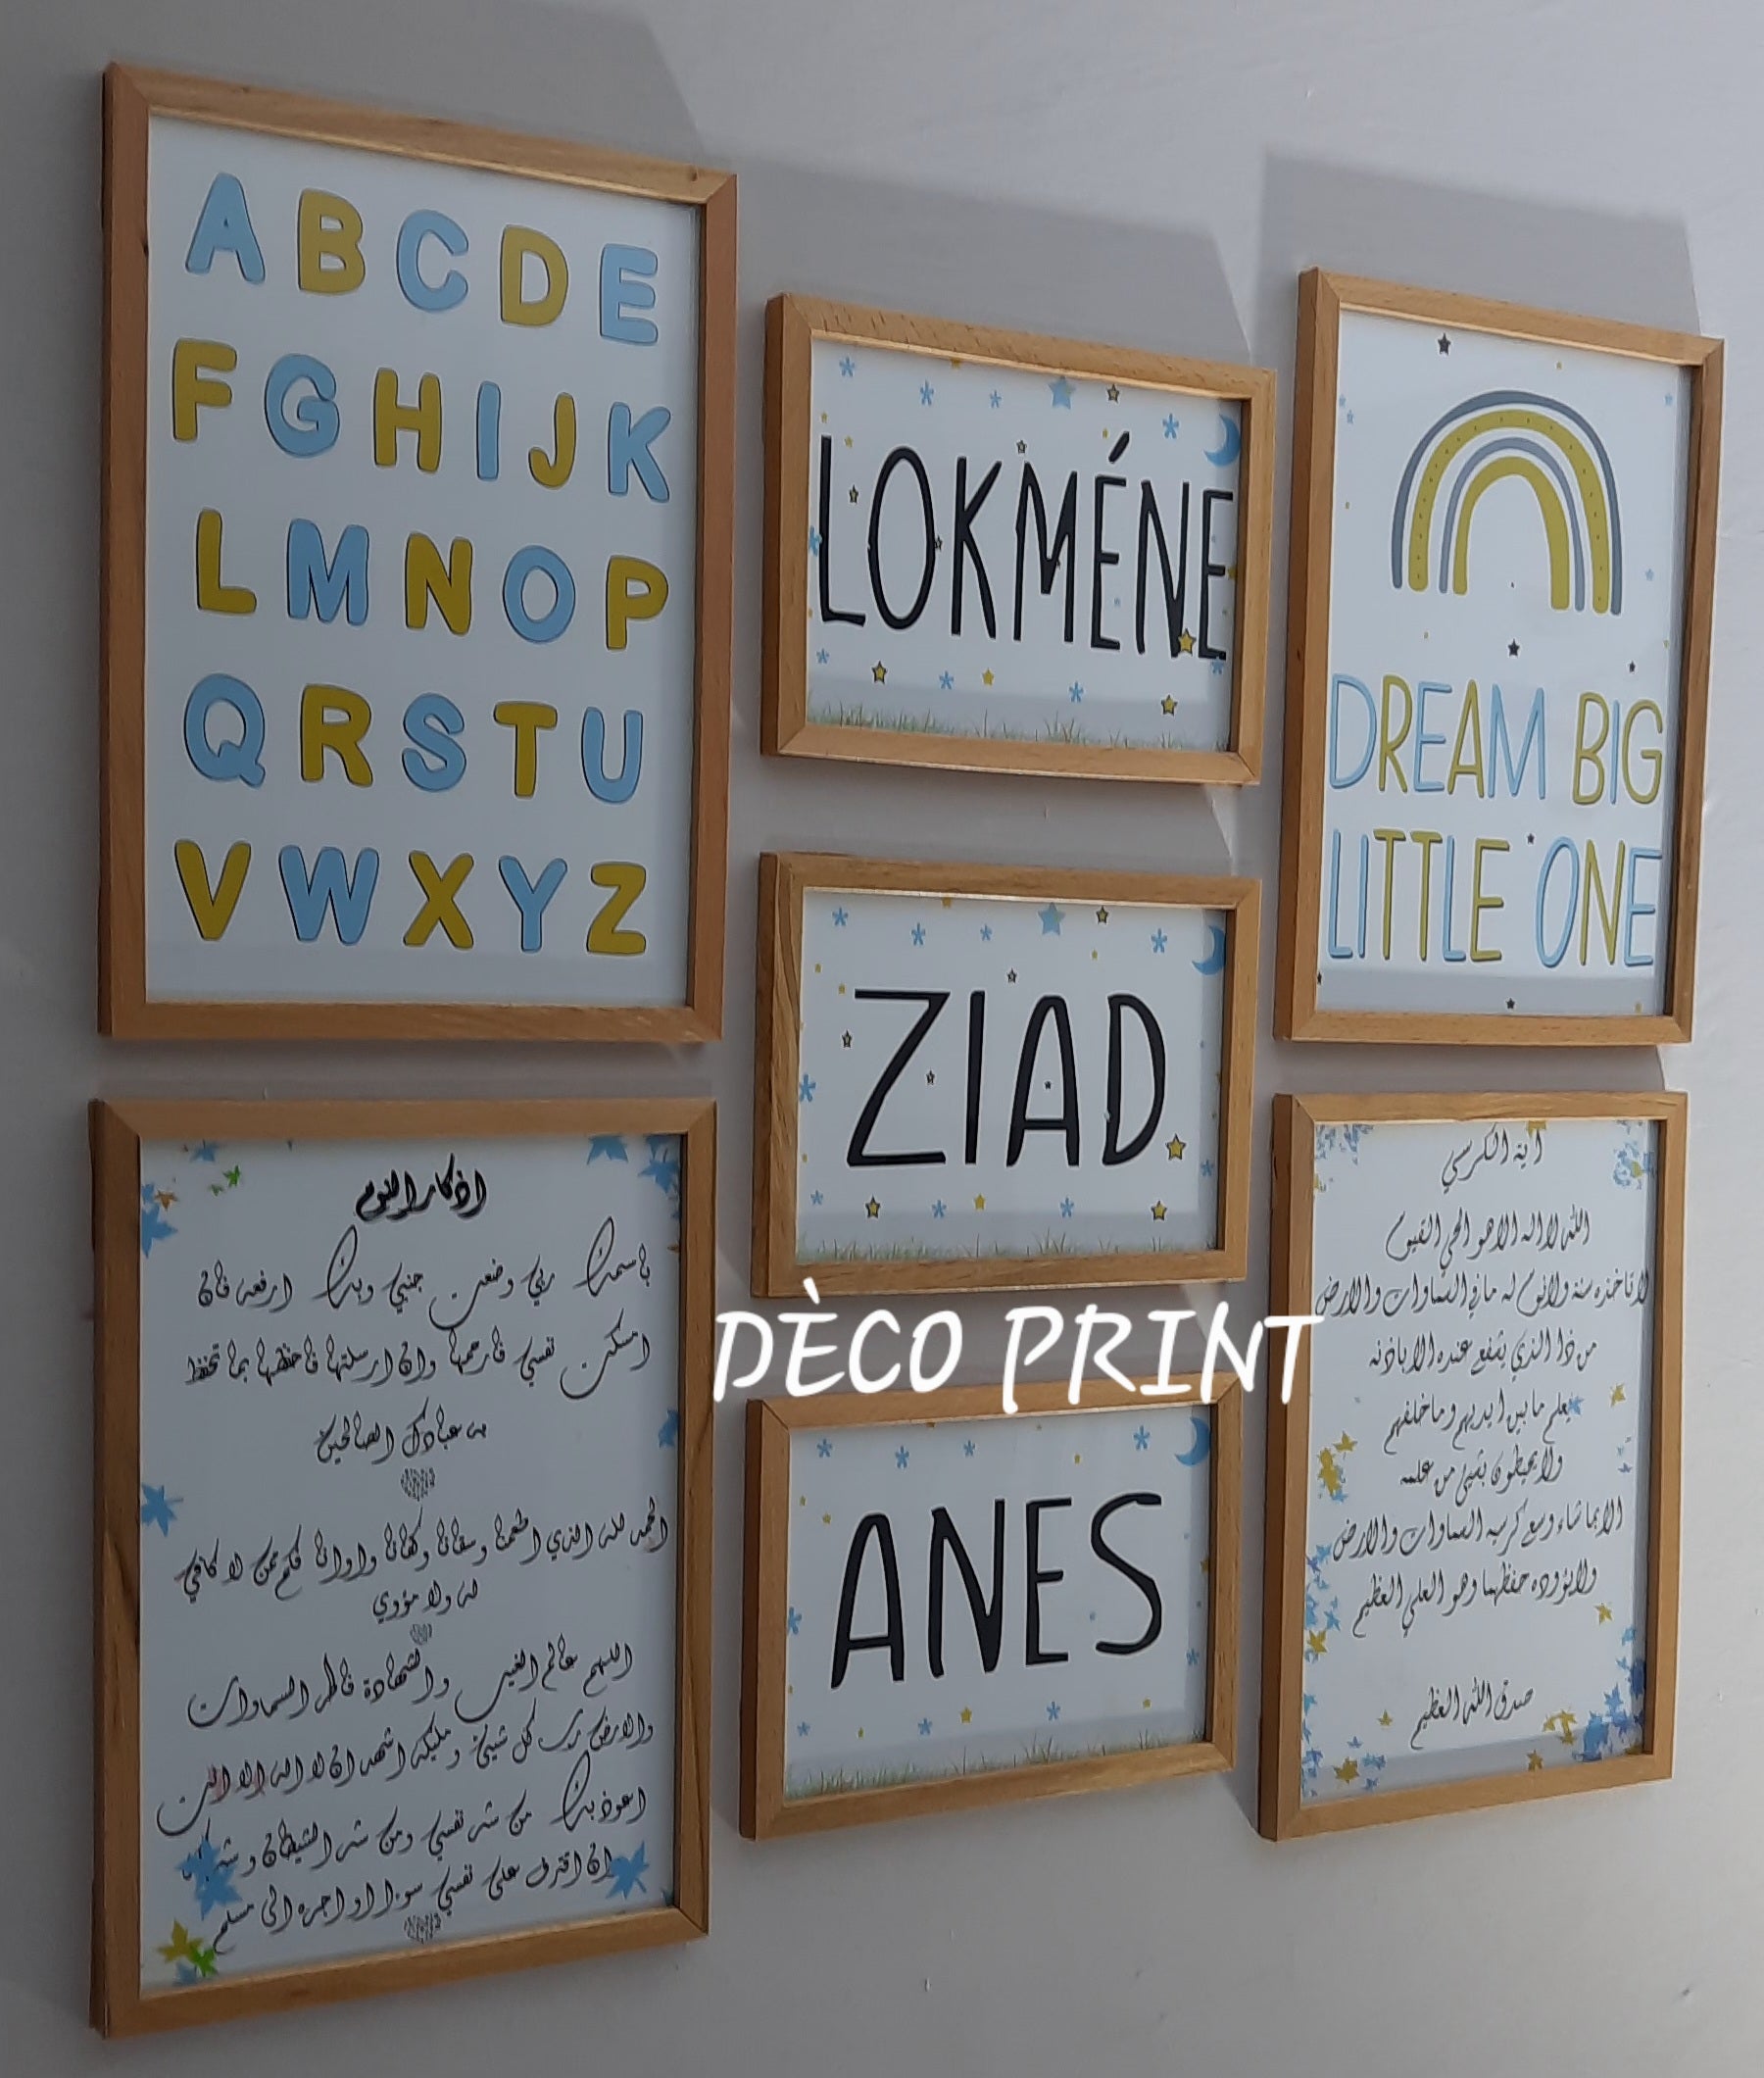 A B C D E
F G H I J K
L M N O P
Q R S T U
V W X Y Z
LOKMÉNE
ZIAD
ANES
DREAM BIG
LITTLE ONE
اذكار النوم
باسمك ربي وضعت جنبي وبك ارفعه فان
امسكت نفسي فارحمها وان ارسلتها فاحفظها بما تحفظ
به عبادك الصالحين
الحمد لله الذي اطعمنا وسقانا وكفانا واوانا فكم ممن لا كافي
له ولا مؤوي
اللهم عالم الغيب والشهادة فاطر السماوات
والارض رب كل شيئ ومليكه اشهد ان لا اله الا انت
اعوذ بك من شر نفسي ومن شر الشيطان و
ان اقترف على نفسي سوءا او اجره الى مسلم
اية الكرسي
الله لا اله الا هو الحي القيوم
لا تاخذه سنة ولا نوم له ما في السماوات والارض
من ذا الذي يشفع عنده الا باذنه
يعلم ما بين ايديهم وما خلفهم
ولا يحيطون بشيئ من علمه
الا بما شاء وسع كرسيه السماوات والارض
ولا يؤوده حفظهما وهو العلي العظيم
صدق الله العظيم
DÈCO PRINT